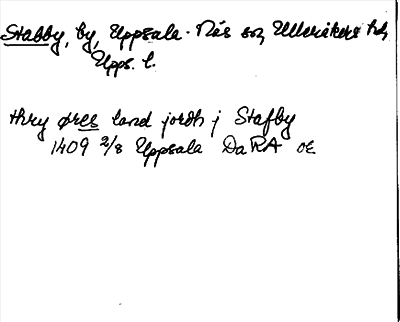 Stabby, by, Uppsala-Näs sn, Ulleråkers hd,
Upps. l.
thry øres land jordh j Stafby
1409 2/8 Uppsala DaRA OE